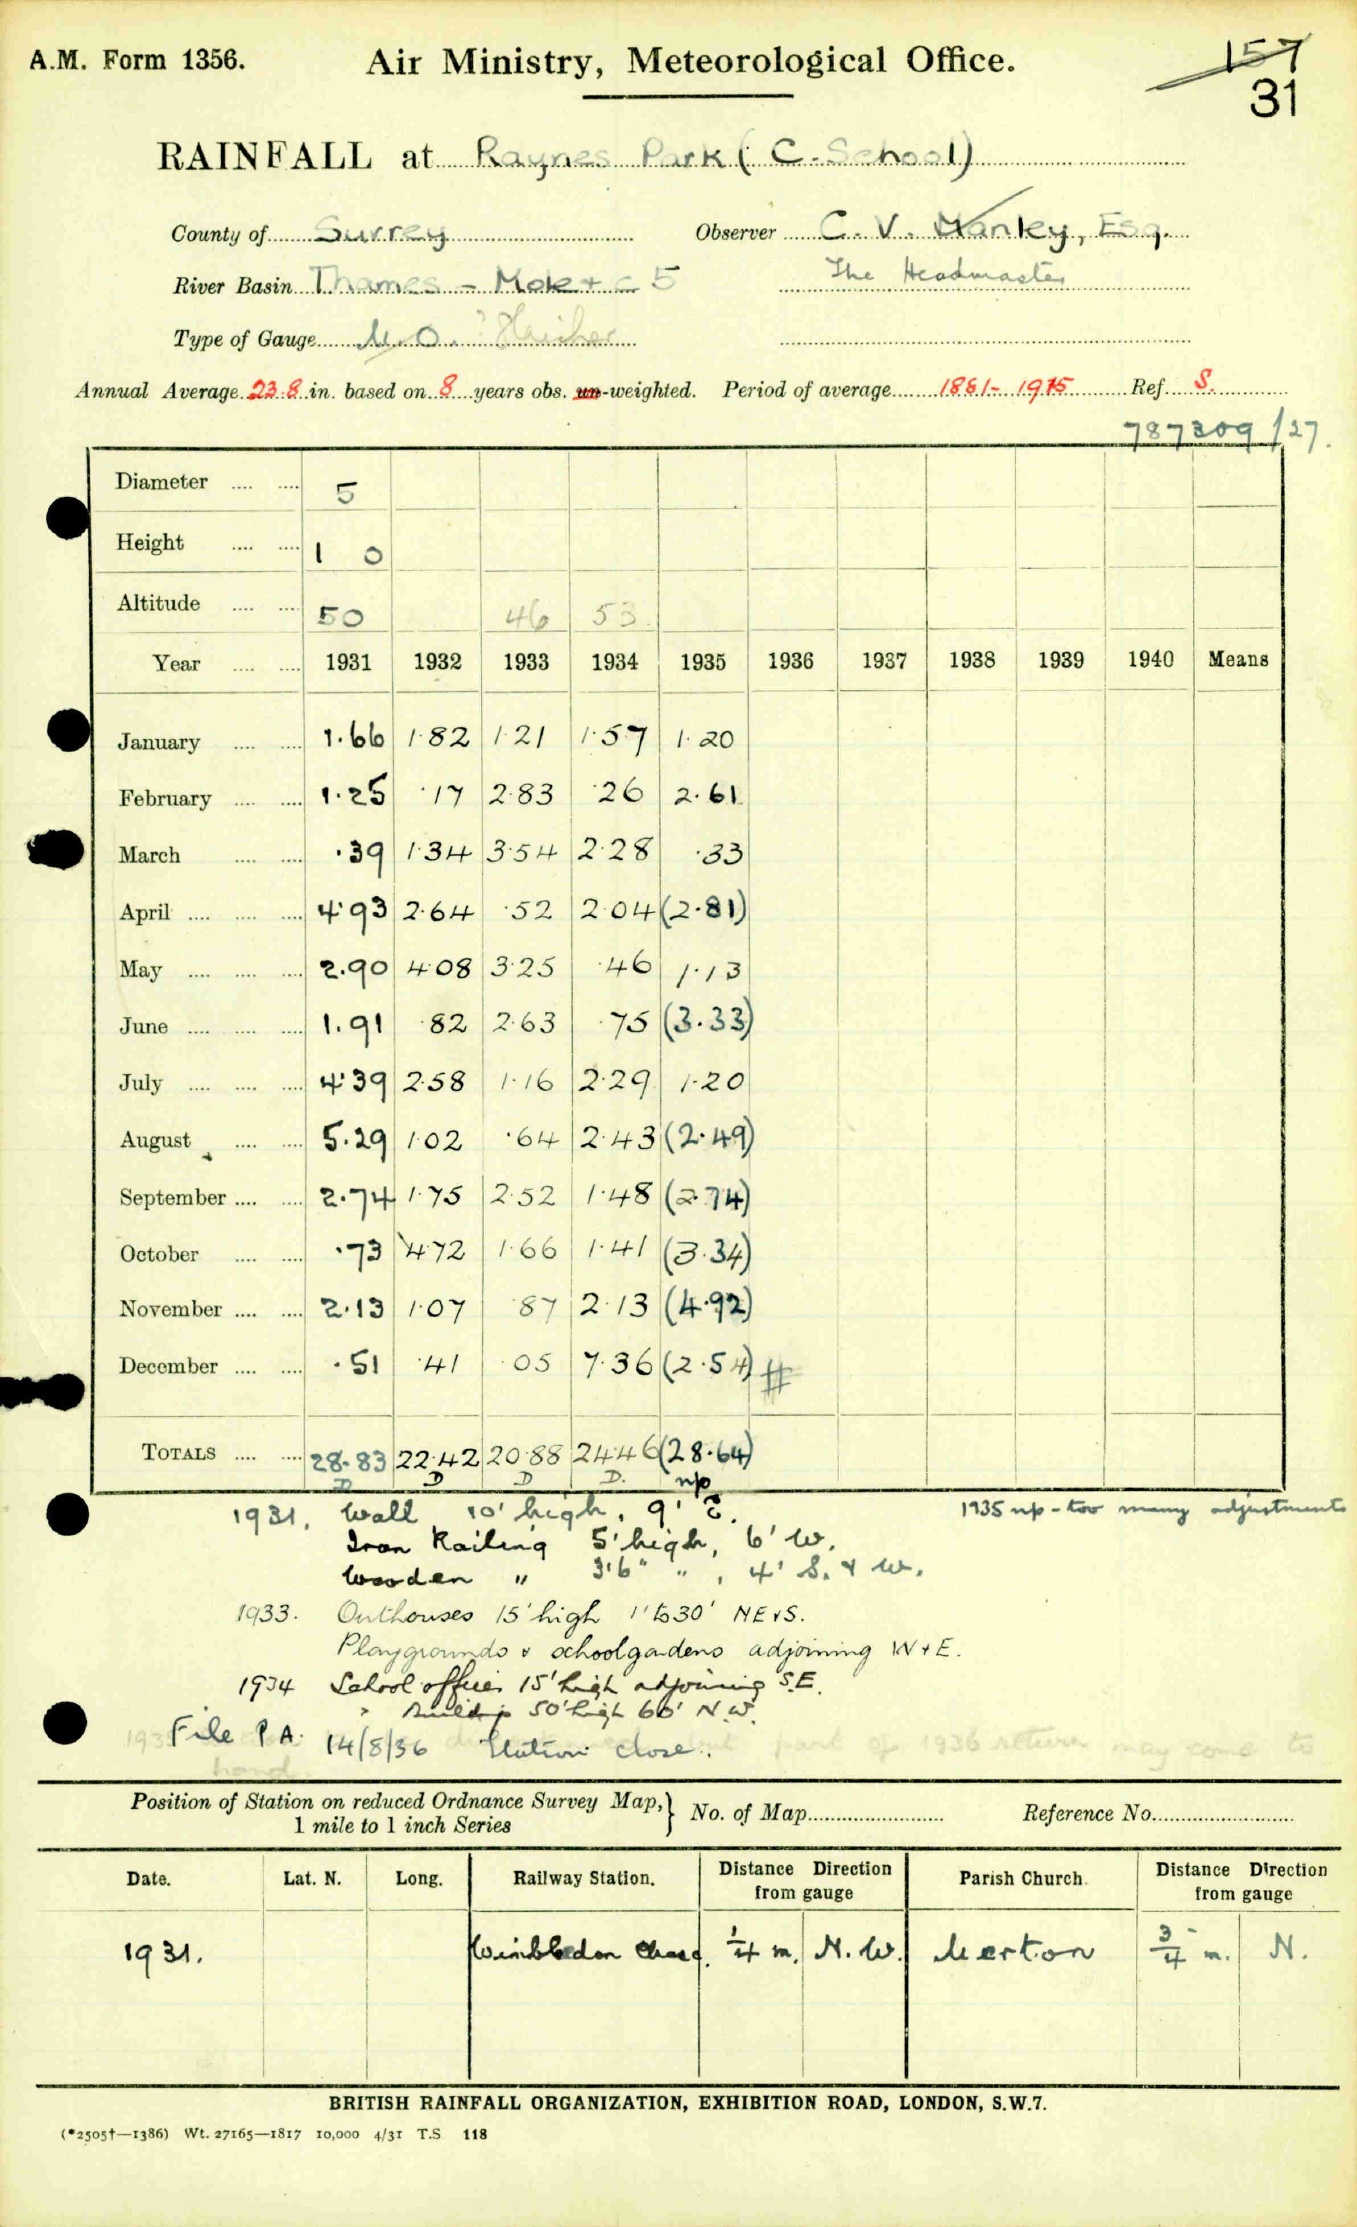 A.M. Form 1356. Air Ministry, Meteorological Office. 157
31
RAINFALL at Raynes Park (C. School)
County of Surrey Observer C. V. Manley, Esq.
River Basin Thames - Mole + c 5 The Headmaster
Type of Gauge M.O.
Annual Average 23.8 in. based on 8 years obs. un-weighted. Period of average 1881-1915 Ref S.
787309/27.
Diameter 5
Height 1 0
Altitude 50 46 53
Year 1931 1932 1933 1934 1935 1936 1937 1938 1939 1940 Means
January 1.66 1.82 1.21 1.57 1.20
February 1.25 .17 2.83 .26 2.61
March .39 1.34 3.54 2.28 .33
April 4.93 2.64 .52 2.04 (2.81)
May 2.90 4.08 3.25 .46 1.13
June 1.91 .82 2.63 .75 (3.33)
July 4.39 2.58 1.16 2.29 1.20
August 5.29 1.02 .64 2.43 (2.49)
September 2.74 1.75 2.52 1.48 (2.74)
October .73 4.72 1.66 1.41 (3.34)
November 2.13 1.07 .87 2.13 (4.92)
December .51 .41 .05 7.36 (2.54) #
TOTALS 28.83 22.42 20.88 24.46 (28.64)
D D D D. np
1931. Wall 10' high, 9' E. 1935 np - too many adjustments
Iron Railing 5' high, 6' W.
Wooden " 3'6" ", 4' S. & W.
1933. Outhouses 15' high 1' to 30' NE & S.
Playgrounds & schoolgardens adjoining W + E.
1934 School offices 15' high adjoining S.E.
" Building 50' high 66' N.W.
File P.A. 14/8/36 Station close. part of 1936 return may come to
hand.
Position of Station on reduced Ordnance Survey Map, 1 mile to 1 inch Series } No. of Map Reference No.
Date. Lat. N. Long. Railway Station. Distance Direction from gauge Parish Church. Distance Direction from gauge
1931. Wimbledon Chase. 1/4 m. N.W. Merton 3/4 m. N.
BRITISH RAINFALL ORGANIZATION, EXHIBITION ROAD, LONDON, S.W.7.
(*2505†—1386) Wt. 27165—1817 10,000 4/31 T.S. 118